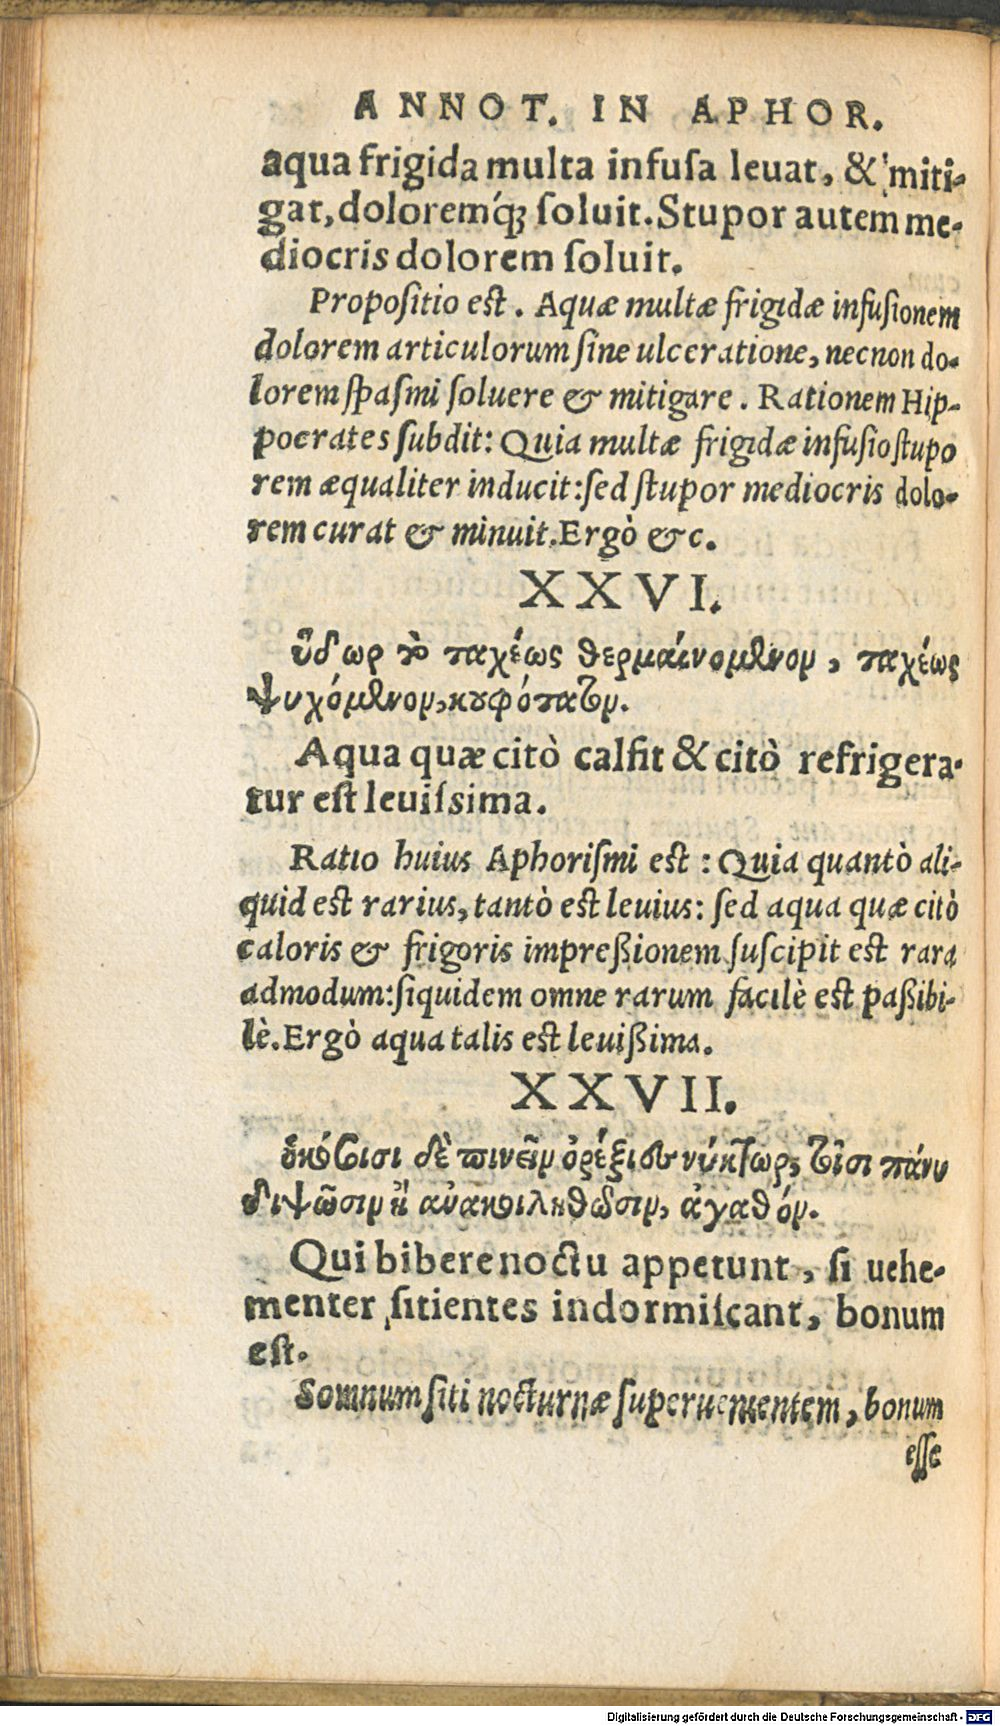 ANNOT. IN APHOR.
aqua frigida multa infuſa leuat, & miti-
gat, doloremq́; ſoluit. Stupor autem me-
diocris dolorem ſoluit.
Propoſitio est. Aquæ multæ frigidæ infuſionem
dolorem articulorum ſine ulceratione, necnon do-
lorem ſpaſmi ſoluere & mitigare. Rationem Hip-
pocrates ſubdit: Quia multæ frigidæ infuſio ſtupo
rem æqualiter inducit: ſed ſtupor mediocris dolo-
rem curat & minuit. Ergò &c.
XXVI.
ὕδωρ τὸ ταχέως θερμαίνομενον, ταχέως
ψυχόμενον, κουφότατον.
Aqua quæ citò calfit & citò refrigera-
tur eſt leuiſsima.
Ratio huius Aphoriſmi est: Quia quantò ali-
quid est rarius, tantò est leuius: ſed aqua quæ citò
caloris & frigoris impreßionem ſuſcipit est rara
admodum: ſiquidem omne rarum facilè est paßibi-
lè. Ergò aqua talis est leuißima.
XXVII.
ὁκόσοισι δὲ πινεῖν ὀρέξις νύκτωρ, τοῖσι πάνυ
διψῶσιν ἢ
ἀγαθόν.
Qui bibere noctu appetunt, ſi uehe-
menter ſitientes indormiſcant, bonum
eſt.
Somnum ſiti nocturnæ ſuperuenientem, bonum
eſſe
Digitalisierung gefördert durch die Deutsche Forschungsgemeinschaft - DFG